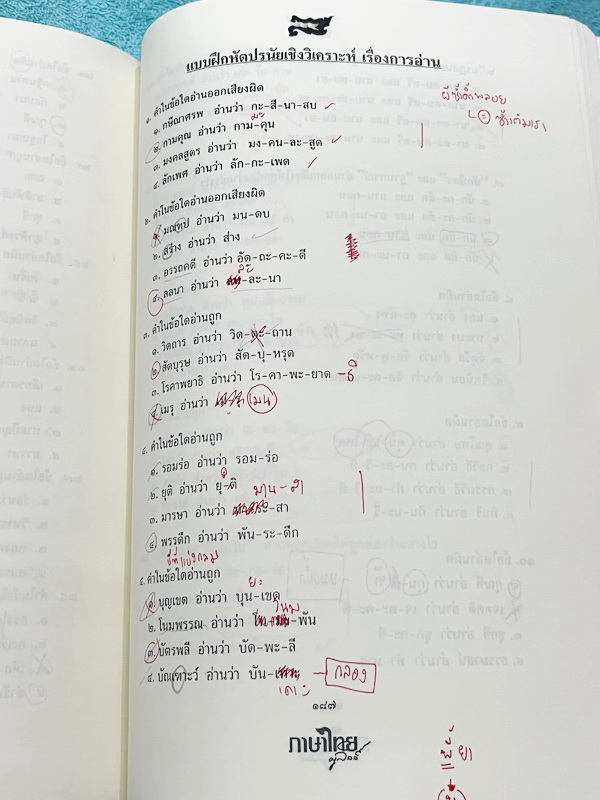 แบบฝึกหัดปรนัยเชิงวิเคราะห์ เรื่องการอ่าน
๑. คำในข้อใดอ่านออกเสียงผิด
๑. กษีณาศรพ อ่านว่า กะ-สี-นา-สบ
๒. กามคุณ อ่านว่า กาม-คุน
มะ
๓. มงคลสูตร อ่านว่า มง-คน-ละ-สูด
๔. ลักเพศ อ่านว่า ลัก-กะ-เพด
๒. คำในข้อใดอ่านออกเสียงผิด
๑. มณฑป อ่านว่า มน-ดบ
๒. สร้าง อ่านว่า ส่าง
๓. อรรถคดี อ่านว่า อัด-ถะ-คะ-ดี
ละ
๔. ลลนา อ่านว่า -ละ-นา
๓. คำในข้อใดอ่านถูก
๑. วิตถาร อ่านว่า วิด-ตะ-ถาน
๒. สัตบุรุษ อ่านว่า สัด-บุ-หรุด
๓. โรคาพยาธิ อ่านว่า โร-คา-พะ-ยาด -ธิ
๔. เมรุ อ่านว่า เมน
๔. คำในข้อใดอ่านถูก
๑. รอมร่อ อ่านว่า รอม-ร่อ
๒. ยุติ อ่านว่า ยุ-ติ
๓. มารษา อ่านว่า -สา
๔. พรรดึก อ่านว่า พัน-ระ-ดึก
๕. คำในข้อใดอ่านถูก
ยะ
๑. บุญเขต อ่านว่า บุน-เขด
๒. โนมพรรณ อ่านว่า -พัน
๓. บัตรพลี อ่านว่า บัด-พะ-ลี
๔. บัณเฑาะว์ อ่านว่า บัน- กลอง
เดาะ
๑๘๗
ภาษาไทย